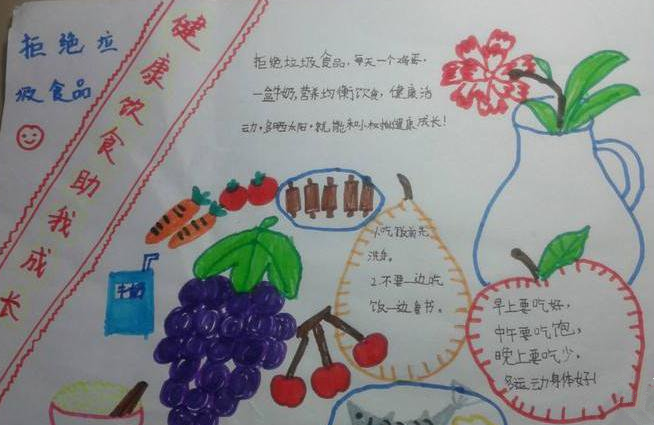 拒绝垃
圾食品
健康饮食助我成长
拒绝垃圾食品,每天一个鸡蛋,
一盒牛奶,营养均衡饮食,健康活
动,多晒太阳,就能和小松柏健康成长!
1.吃饭前先
洗手。
2.不要一边吃
饭一边看书。
牛奶
早上要吃好,
中午要吃饱,
晚上要吃少,
多运动身体好!